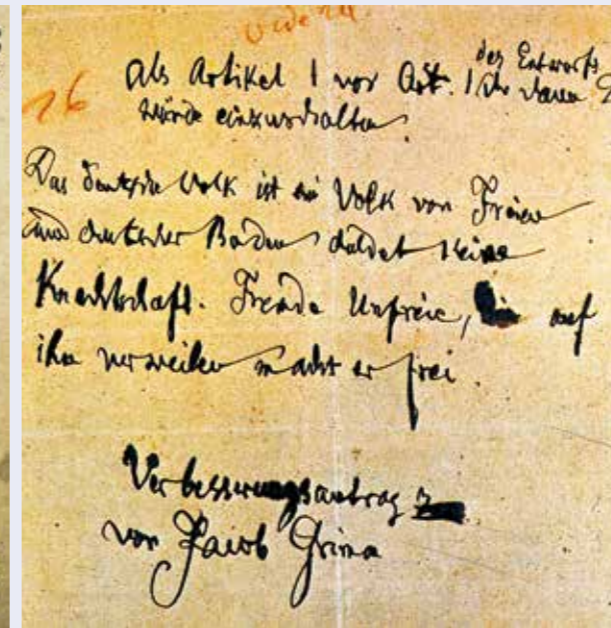 16
des Entwurfs
als Artikel 1 vor Art. 1
würde einzuschalten
Das deutsche Volk ist ein Volk von Freien
und deutscher Boden duldet keine
Knechtschaft. Fremde Unfreie, die auf
ihm verweilen macht er frei.
Verbesserungsantrag
von Jacob Grimm